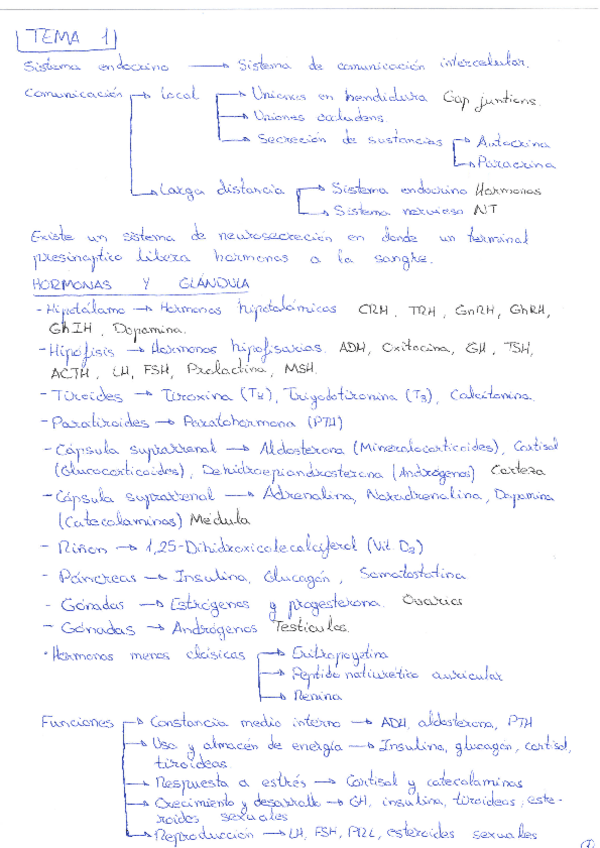 TEMA 1
Sistema endocrino → Sistema de comunicación intercelular.
Comunicación → Local → Uniones en hendidura Gap juntions.
→ Uniones ocludens.
→ Secreción de sustancias → Autocrina
→ Paracrina
→ Larga distancia → Sistema endocrino Hormonas
→ Sistema nervioso NT
Existe un sistema de neurosecreción en donde un terminal
presináptico libera hormonas a la sangre.
HORMONAS Y GLÁNDULA
- Hipotálamo → Hormonas hipotalámicas CRH, TRH, GnRH, GhRH,
GhIH, Dopamina.
- Hipófisis → Hormonas hipofisarias. ADH, Oxitocina, GH, TSH,
ACTH, LH, FSH, Prolactina, MSH.
- Tiroides → Tiroxina (T4), Triyodotironina (T3), Calcitonina.
- Paratiroides → Paratohormona (PTH)
- Cápsula suprarrenal → Aldosterona (Mineralocorticoides), Cortisol
(Glucocorticoides), Dehidroepiandrosterona (Andrógenos) Corteza
- Cápsula suprarrenal → Adrenalina, Noradrenalina, Dopamina
(Catecolaminas) Médula
- Riñon → 1,25-Dihidroxicolecalciferol (Vit D3)
- Páncreas → Insulina, Glucagón, Somatostatina
- Gónadas → Estrógenos y progesterona. Ovarios
- Gónadas → Andrógenos Testículos.
· Hormonas menos clásicas → Eritropoyetina
→ Péptido natiurético auricular
→ Renina
Funciones → Constancia medio interno → ADH, aldosterona, PTH
→ Uso y almacén de energía → Insulina, glucagón, cortisol,
tiroideas
→ Respuesta a estrés → Cortisol y catecolaminas
→ Crecimiento y desarrollo → GH, insulina, tiroideas, este-
roides sexuales
→ Reproducción → LH, FSH, PRL, esteroides sexuales
①